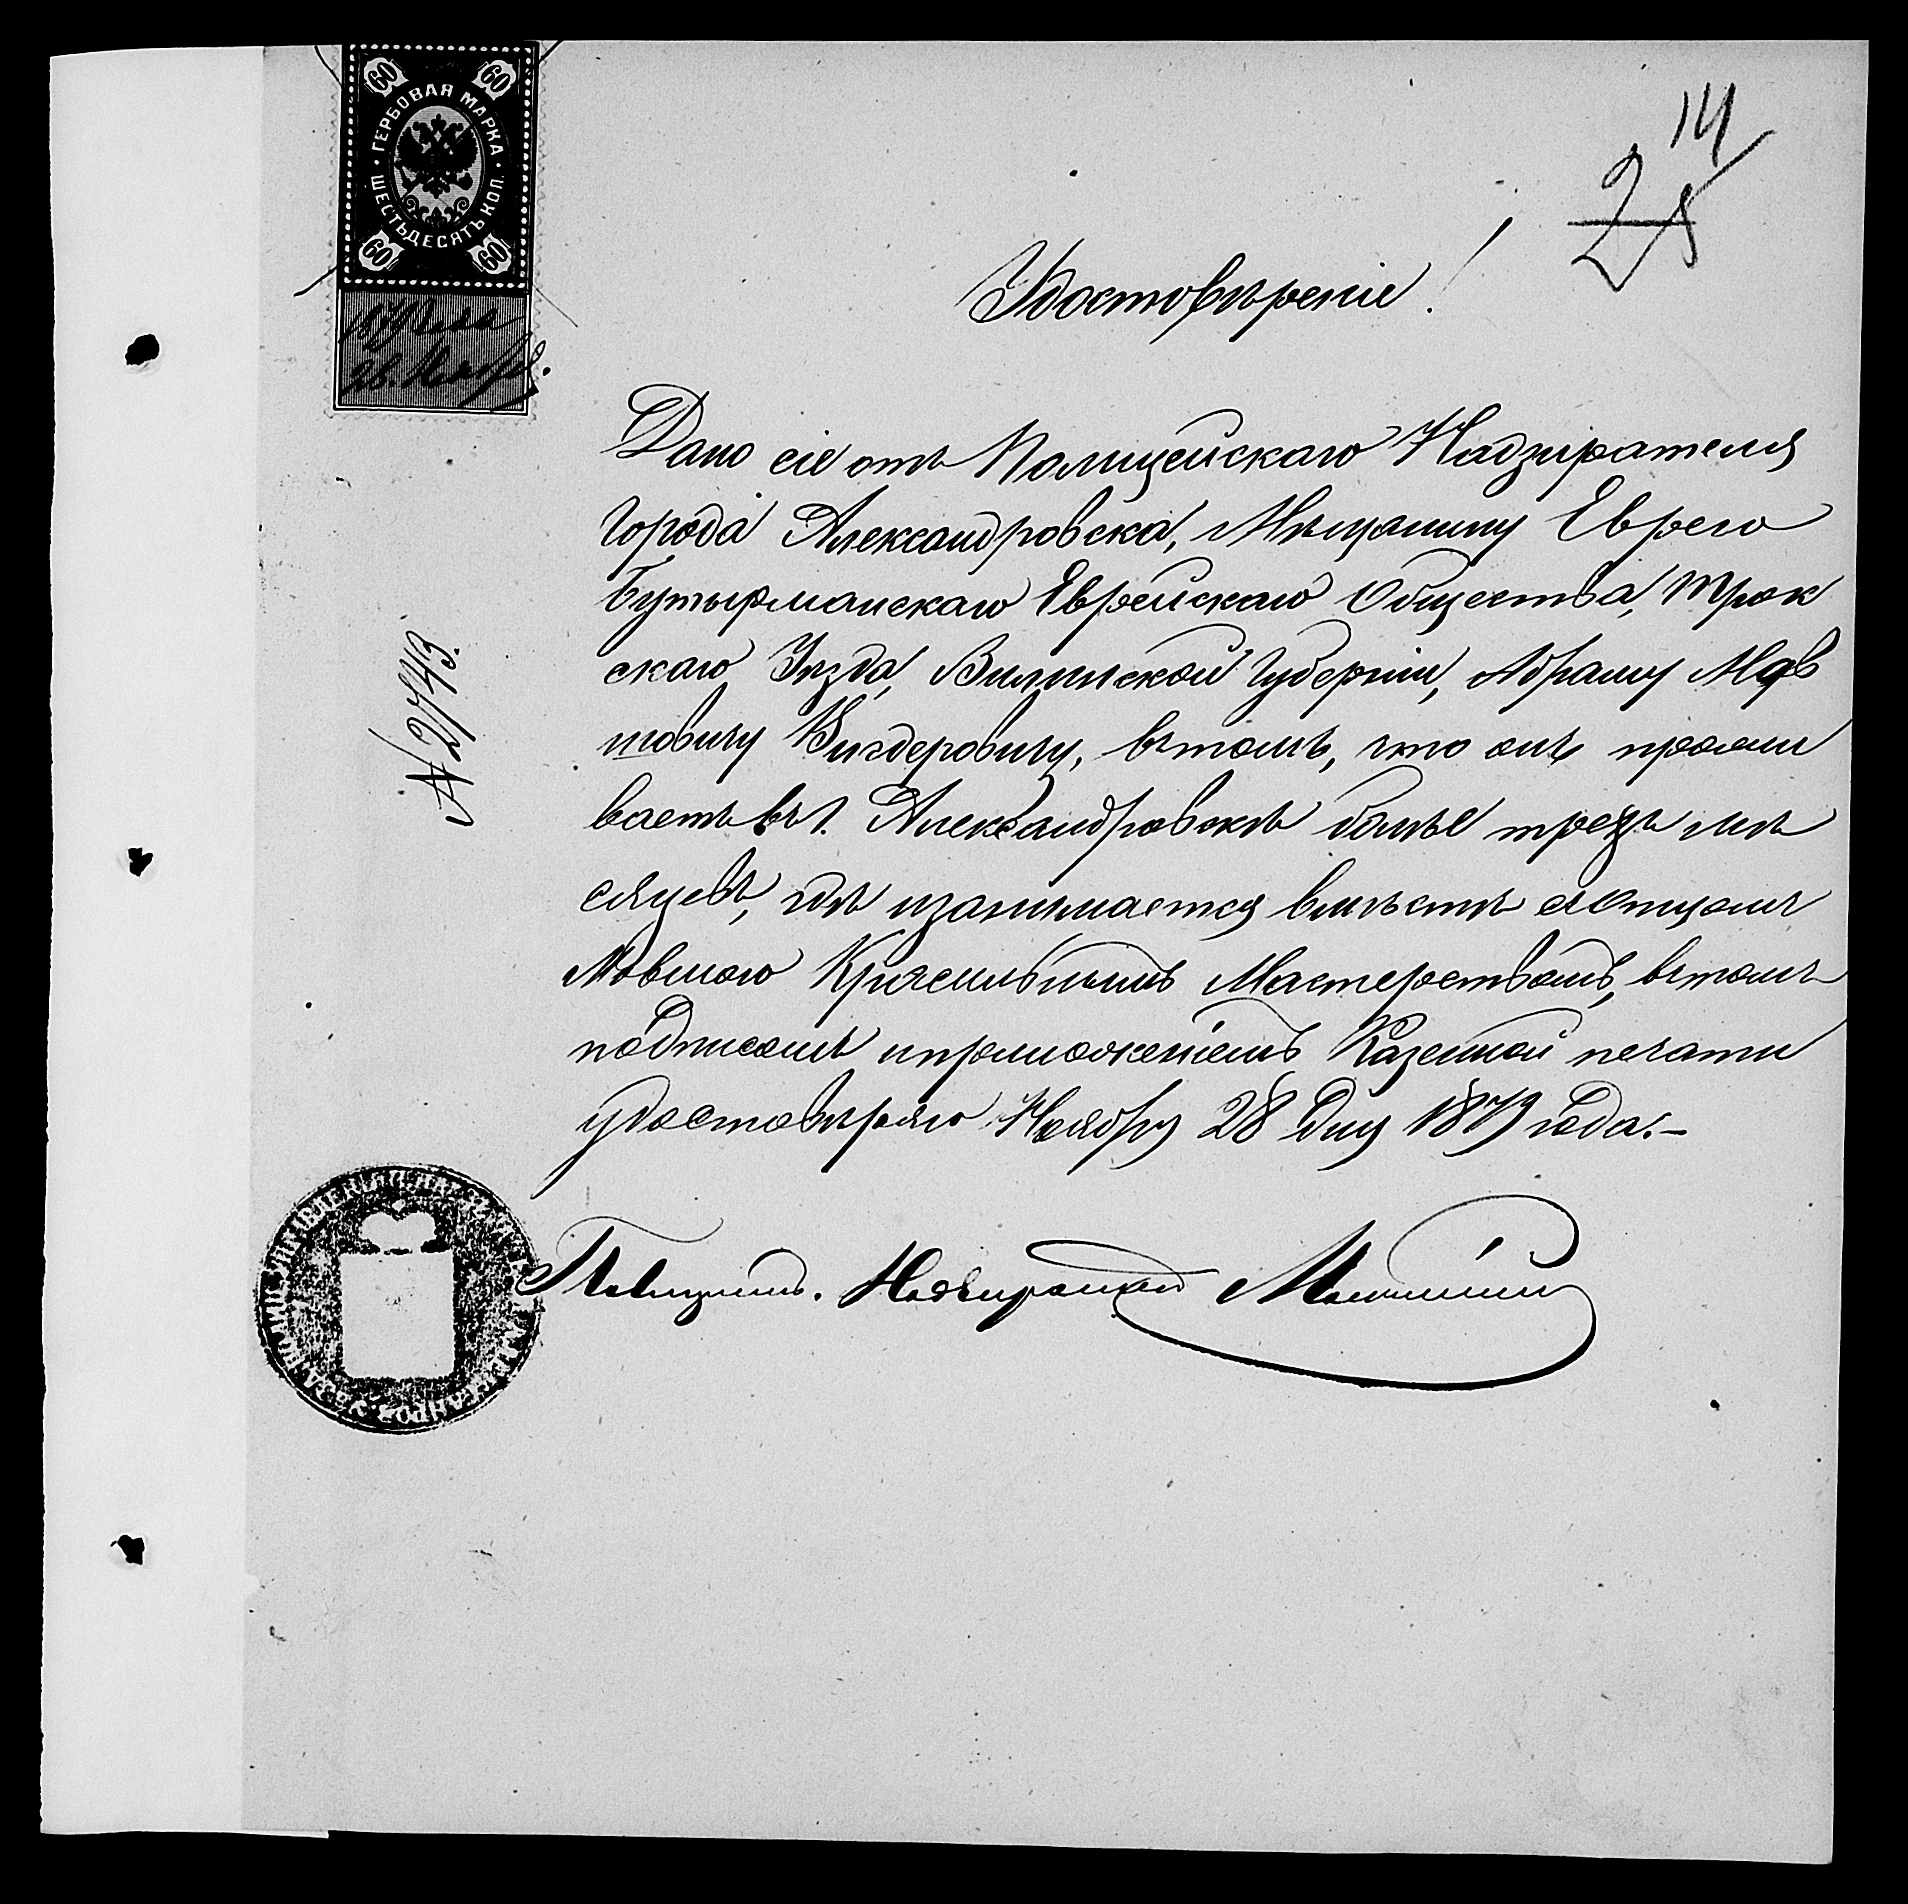 60 60
ГЕРБОВАЯ МАРКА
ШЕСТЬДЕСЯТЪ КОП.
60 60
14
25
Удостовѣреніе!
Дано сіе отъ Полицейскаго Надзирателя
города Александровска, Мѣщанину Еврею
Бутырманскаго Еврейскаго Общества, Трок
скаго Уѣзда, Виленской Губерніи, Абраму Мов
шовичу Вигдоровичу, въ томъ, что онъ прожи
ваетъ въ г. Александровскѣ болѣе трехъ мѣ
сяцевъ, гдѣ и занимается вмѣстѣ съ Отцомъ
Мовшою Красильнымъ Мастерствомъ, въ томъ
подписомъ и приложеніемъ Казенной печати
удостовѣряю Ноября 28 дня 1879 года.–
№ 2743.
Полицейск. Надзиратель